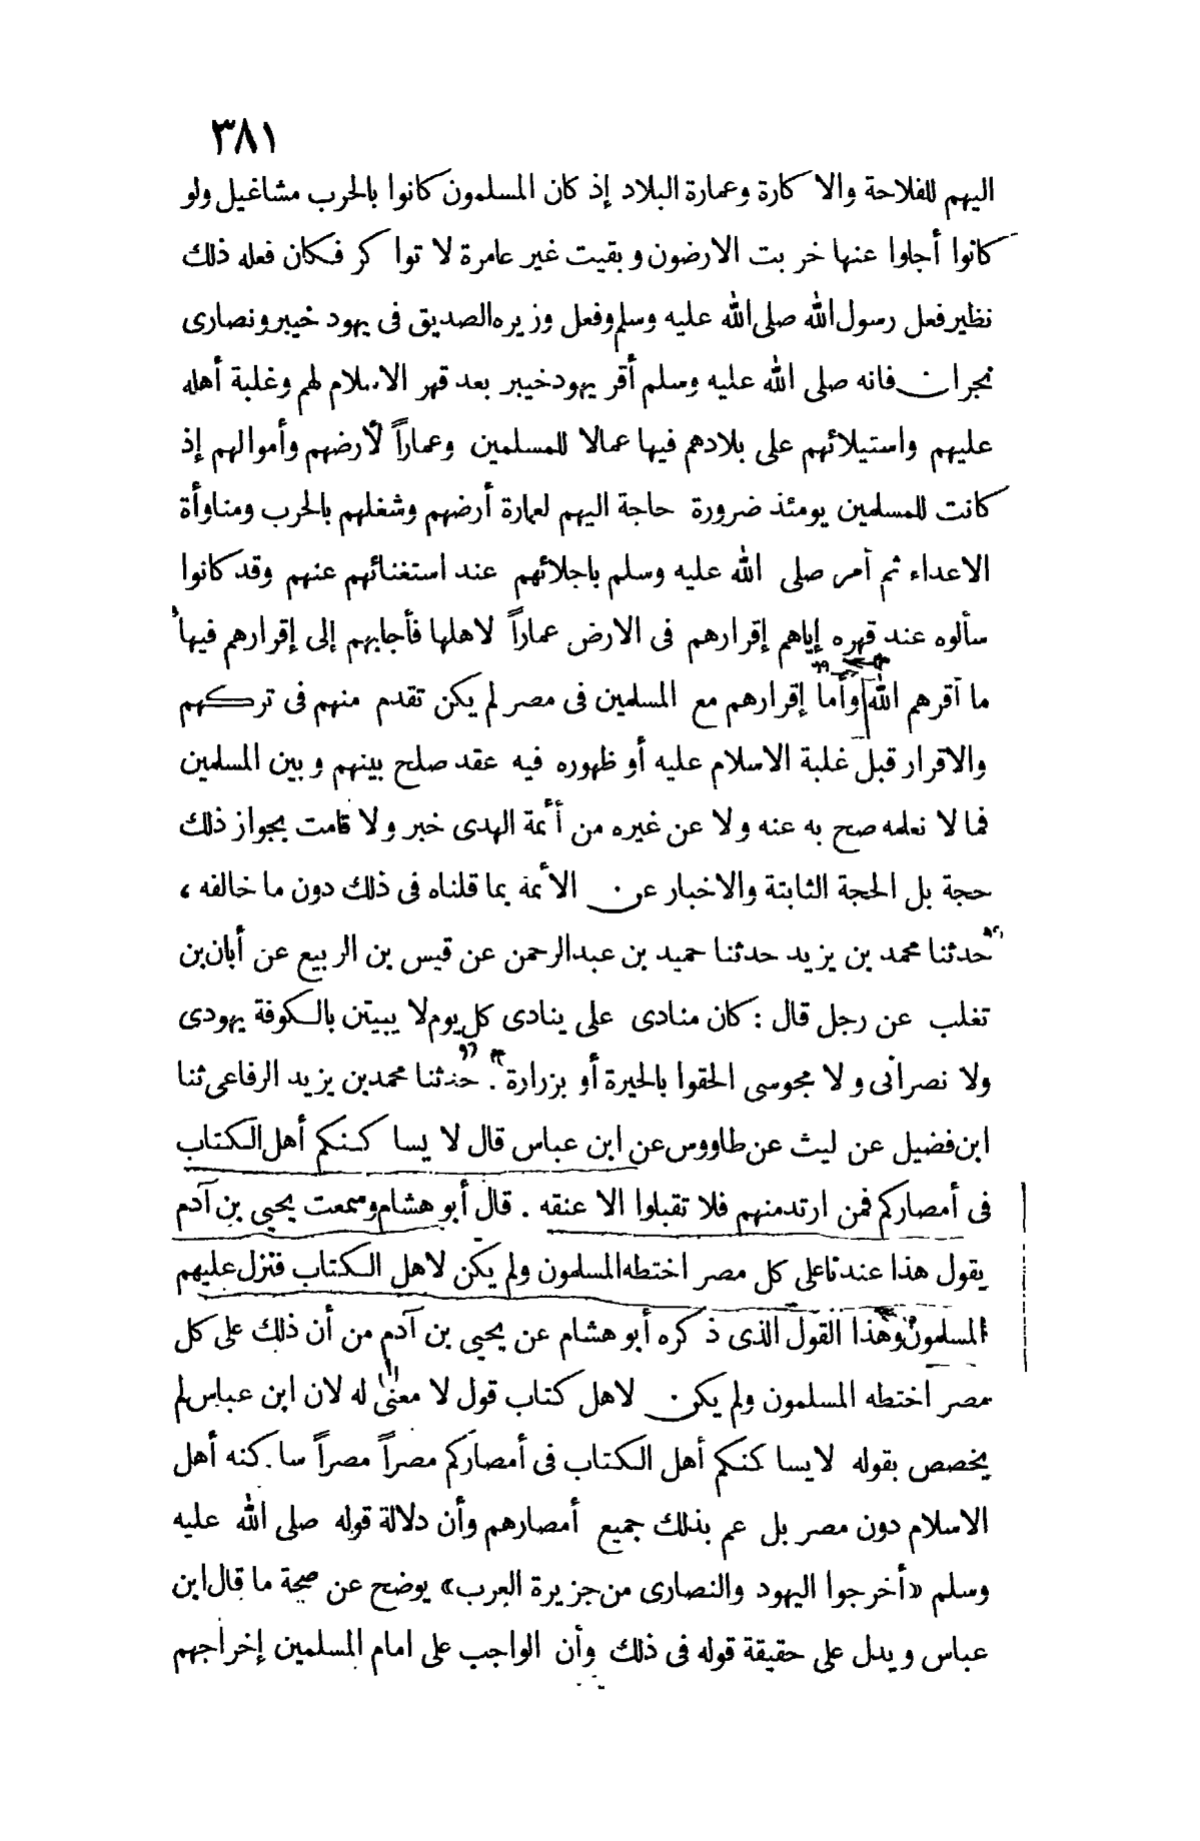 ٣٨١
اليهم للفلاحة والاكارة وعمارة البلاد إذ كان المسلمون كانوا بالحرب مشاغيل ولو
كانوا أجلوا عنها خربت الارضون وبقيت غير عامرة لا تواكر فكان فعله ذلك
نظير فعل رسول الله صلى الله عليه وسلم وفعل وزيره الصديق فى يهود خيبر ونصارى
نجران فانه صلى الله عليه وسلم أقر يهود خيبر بعد قهر الاسلام لهم وغلبة أهله
عليهم واستيلائهم على بلادهم فيها عمالا للمسلمين وعماراً لأرضهم وأموالهم إذ
كانت للمسلمين يومئذ ضرورة حاجة اليهم لعمارة أرضهم وشغلهم بالحرب ومناوأة
الاعداء ثم أمر صلى الله عليه وسلم باجلائهم عند استغنائهم عنهم وقد كانوا
سألوه عند قهره إياهم إقرارهم فى الارض عماراً لاهلها فأجابهم إلى إقرارهم فيها
ما أقرهم الله وأما إقرارهم مع المسلمين فى مصر لم يكن تقدم منهم فى تركهم
والاقرار قبل غلبة الاسلام عليه أو ظهوره فيه عقد صلح بينهم وبين المسلمين
فمالا نعلمه صح به عنه ولا عن غيره من أئمة الهدى خبر ولا قامت بجواز ذلك
حجة بل الحجة الثابتة والاخبار عن الأئمة بما قلناه فى ذلك دون ما خالفه ،
حدثنا محمد بن يزيد حدثنا حميد بن عبدالرحمن عن قيس بن الربيع عن أبان بن
تغلب عن رجل قال : كان منادى على ينادى كل يوم لا يبيتن بالكوفة يهودى
ولا نصرانى ولا مجوسى الحقوا بالحيرة أو بزرارة . حدثنا محمد بن يزيد الرفاعى ثنا
ابن فضيل عن ليث عن طاووس عن ابن عباس قال لا يساكنكم أهل الكتاب
فى أمصاركم فمن ارتد منهم فلا تقبلوا الا عنقه . قال أبو هشام وسمعت يحيى بن آدم
يقول هذا عندنا على كل مصر اختطه المسلمون ولم يكن لاهل الكتاب فتزل عليهم
المسلمون وهذا القول الذى ذكره أبو هشام عن يحيى بن آدم من أن ذلك على كل
مصر اختطه المسلمون ولم يكن لاهل كتاب قول لا معنى له لان ابن عباس لم
يخصص بقوله لايساكنكم أهل الكتاب فى أمصاركم مصراً مصراً ساكنه أهل
الاسلام دون مصر بل عم بذلك جميع أمصارهم وأن دلالة قوله صلى الله عليه
وسلم «أخرجوا اليهود والنصارى من جزيرة العرب» يوضح عن صحة ما قال ابن
عباس ويدل على حقيقة قوله فى ذلك وأن الواجب على امام المسلمين إخراجهم